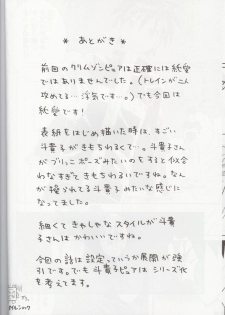 * あとがき *
前回のクリムゾンピュアは正確には純愛
ではありませんでした。(トレインがガンガン
攻めてる… 浮気です…。)でも今回は
純愛です!
表紙をはじめ描いた時は、すごい
斗貴子がきもちわるくて…。斗貴子が
ブリっこポーズみたいのをすると似合
わなすぎてときもちわるいですね。なん
か操られてる斗貴子みたいな感じに
なってました。
細くてきゃしゃなスタイルが斗貴
子さんはかわいいですね。
今回の話は設定っていうか展開が強
引です。でも斗貴子ピュアはシリーズ化
を考えてます。